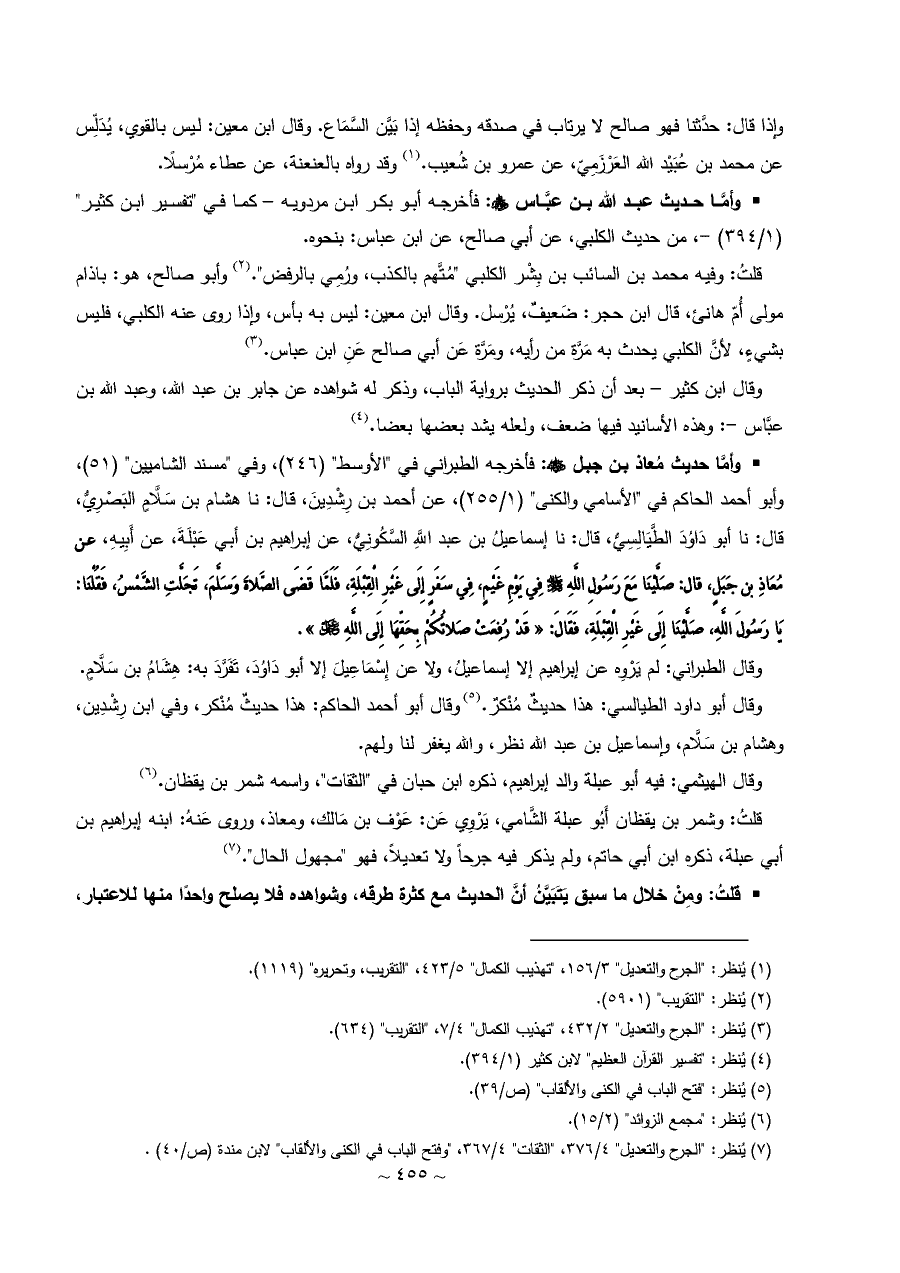 وإذا قال: حدَّثنا فهو صالح لا يرتاب في صدقه وحفظه إذا بَيَّن السَّمَاع. وقال ابن معين: ليس بالقوي، يُدَلِّس
عن محمد بن عُبَيْد الله العَرْزَمِيّ، عن عمرو بن شُعيب.(١) وقد رواه بالعنعنة، عن عطاء مُرْسلًا.
▪ وأمَّا حديث عبد الله بن عبَّاس ﵁: فأخرجه أبو بكر ابن مردويه – كما في "تفسير ابن كثير"
(٣٩٤/١) –، من حديث الكلبي، عن أبي صالح، عن ابن عباس: بنحوه.
قلتُ: وفيه محمد بن السائب بن بِشْر الكلبي "مُتَّهم بالكذب، ورُمِي بالرفض".(٢) وأبو صالح، هو: باذام
مولى أُمّ هانئ، قال ابن حجر: ضَعيفٌ، يُرْسل. وقال ابن معين: ليس به بأس، وإذا روى عنه الكلبي، فليس
بشيءٍ، لأنَّ الكلبي يحدث به مَرَّة من رأيه، ومَرَّة عَن أبي صالح عَنِ ابن عباس.(٣)
وقال ابن كثير – بعد أن ذكر الحديث برواية الباب، وذكر له شواهده عن جابر بن عبد الله، وعبد الله بن
عبَّاس –: وهذه الأسانيد فيها ضعف، ولعله يشد بعضها بعضا.(٤)
▪ وأمَّا حديث مُعاذ بن جبل ﵁: فأخرجه الطبراني في "الأوسط" (٢٤٦)، وفي "مسند الشاميين" (٥١)،
وأبو أحمد الحاكم في "الأسامي والكنى" (٢٥٥/١)، عن أحمد بن رِشْدِينَ، قال: نا هشام بن سَلَّامٍ البَصْرِيُّ،
قال: نا أبو دَاوُدَ الطَّيَالِسِيُّ، قال: نا إسماعيلُ بن عبد اللَّهِ السَّكُونِيُّ، عن إبراهيم بن أبي عَبْلَةَ، عن أَبِيهِ، عن
مُعَاذِ بن جَبَلٍ، قال: صَلَّيْنَا مَعَ رَسُولِ اللَّهِ ﷺ فِي يَوْمِ غَيْمٍ، فِي سَفَرٍ إِلَى غَيْرِ الْقِبْلَةِ، فَلَمَّا قَضَى الصَّلاةَ وَسَلَّمَ، تَجَلَّتِ الشَّمْسُ، فَقُلْنَا:
يَا رَسُولَ اللَّهِ، صَلَّيْنَا إِلَى غَيْرِ الْقِبْلَةِ، فَقَالَ: « قَدْ رُفِعَتْ صَلاتُكُمْ بِحَقِّهَا إِلَى اللَّهِ ﷻ ».
وقال الطبراني: لم يَرْوِه عن إبراهيم إلا إسماعيلُ، ولا عن إِسْمَاعِيلَ إلا أبو دَاوُدَ، تَفَرَّدَ به: هِشَامُ بن سَلَّامٍ.
وقال أبو داود الطيالسي: هذا حديثٌ مُنْكرٌ.(٥) وقال أبو أحمد الحاكم: هذا حديثٌ مُنْكر، وفي ابن رِشْدِين،
وهشام بن سَلَّام، وإسماعيل بن عبد الله نظر، والله يغفر لنا ولهم.
وقال الهيثمي: فيه أبو عبلة والد إبراهيم، ذكره ابن حبان في "الثقات"، واسمه شمر بن يقظان.(٦)
قلتُ: وشمر بن يقظان أَبُو عبلة الشَّامي، يَرْوِي عَن: عَوْف بن مَالك، ومعاذ، وروى عَنهُ: ابنه إبراهيم بن
أبي عبلة، ذكره ابن أبي حاتم، ولم يذكر فيه جرحاً ولا تعديلاً، فهو "مجهول الحال".(٧)
▪ قلتُ: ومِنْ خلال ما سبق يَتَبَيَّنُ أنَّ الحديث مع كثرة طرقه، وشواهده فلا يصلح واحدًا منها للاعتبار،
(١) يُنظر: "الجرح والتعديل" ١٥٦/٣، "تهذيب الكمال" ٤٢٣/٥، "التقريب، وتحريره" (١١١٩).
(٢) يُنظر: "التقريب" (٥٩٠١).
(٣) يُنظر: "الجرح والتعديل" ٤٣٢/٢، "تهذيب الكمال" ٧/٤، "التقريب" (٦٣٤).
(٤) يُنظر: "تفسير القرآن العظيم" لابن كثير (٣٩٤/١).
(٥) يُنظر: "فتح الباب في الكنى والألقاب" (ص/٣٩).
(٦) يُنظر: "مجمع الزوائد" (١٥/٢).
(٧) يُنظر: "الجرح والتعديل" ٣٧٦/٤، "الثقات" ٣٦٧/٤، "وفتح الباب في الكنى والألقاب" لابن مندة (ص/٤٠) .
~ ٤٥٥ ~